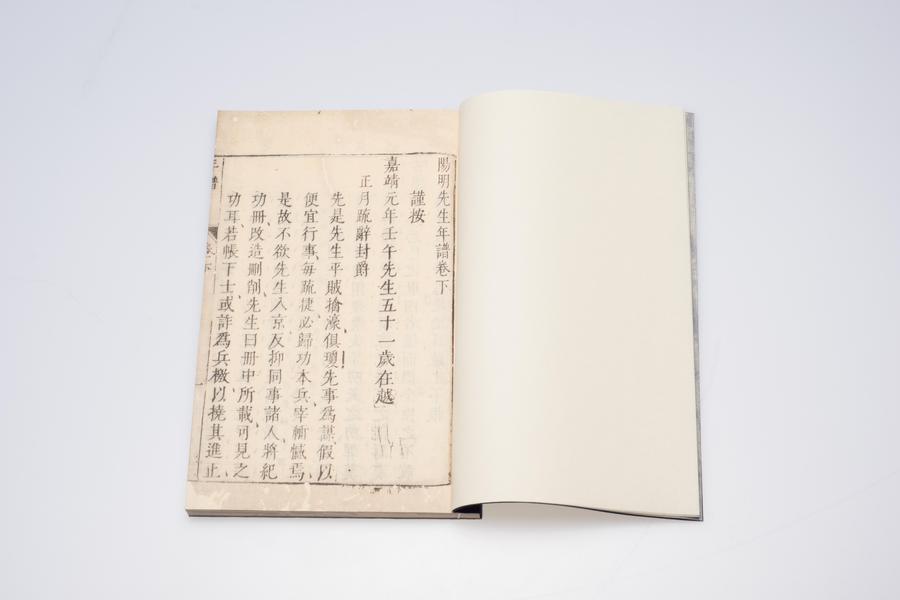 陽明先生年譜卷下
謹按
嘉靖元年壬午先生五十一歲在越
正月疏辭封爵
先是先生平賊擒濠俱瓊先事爲謀假以
便宜行事每疏捷必歸功本兵宰輔憾焉
是故不欲先生入京反抑同事諸人將紀
功冊改造刪削先生曰冊中所載可見之
功耳若帳下士或詐爲兵檄以撓其進止
年譜
卷下